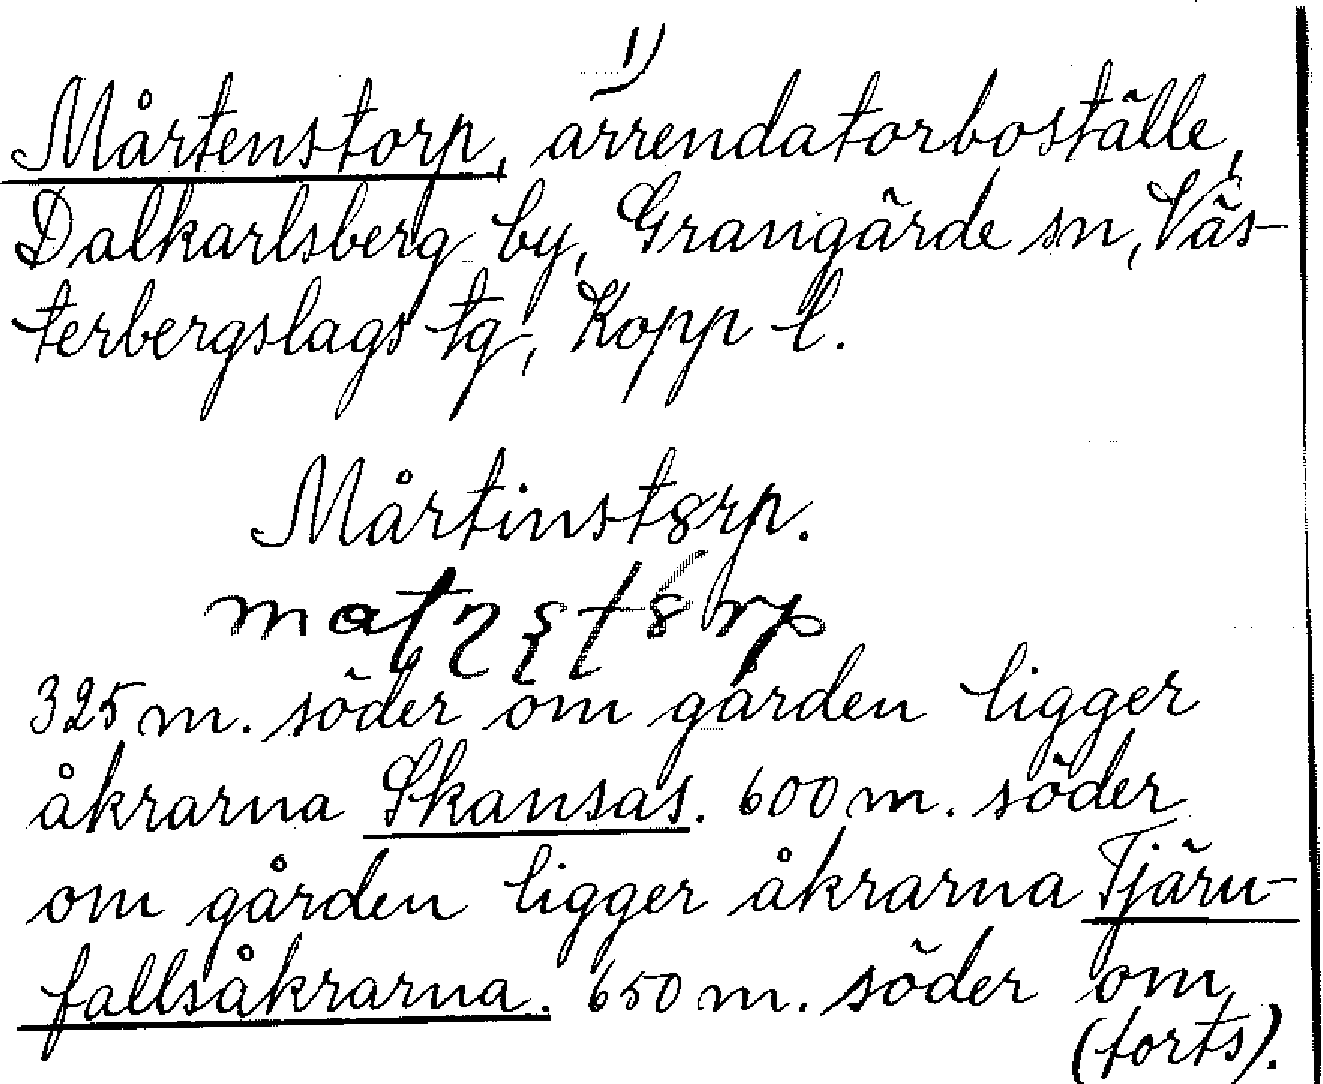 1)
Mårtenstorp, arrendatorboställe,
Dalkarlsberg by, Grangärde sn, Väs-
terbergslags tg, Kopp l.
Mårtinstȣrp.
325 m. söder om gården ligger
åkrarna Skansas. 600 m. söder
om gården ligger åkrarna Tjäru-
fallsåkrarna. 650 m. söder om
(forts).